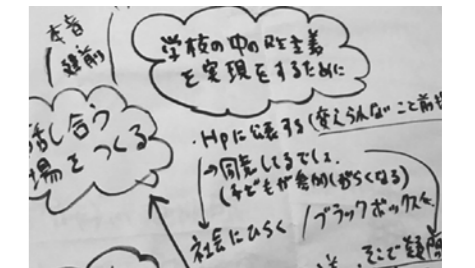 本音
建前
学校の中の民主主義
を実現をするために
話し合う
場をつくる
・Hpに公表する(変えられないこと前提
→同意してるでしょ。
(子どもが参加しづらくなる)
社会にひらく
ブラックボックス化
そこで疑問